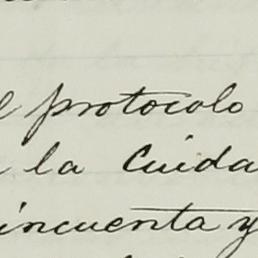 l protocolo
la Cuida
incuenta y